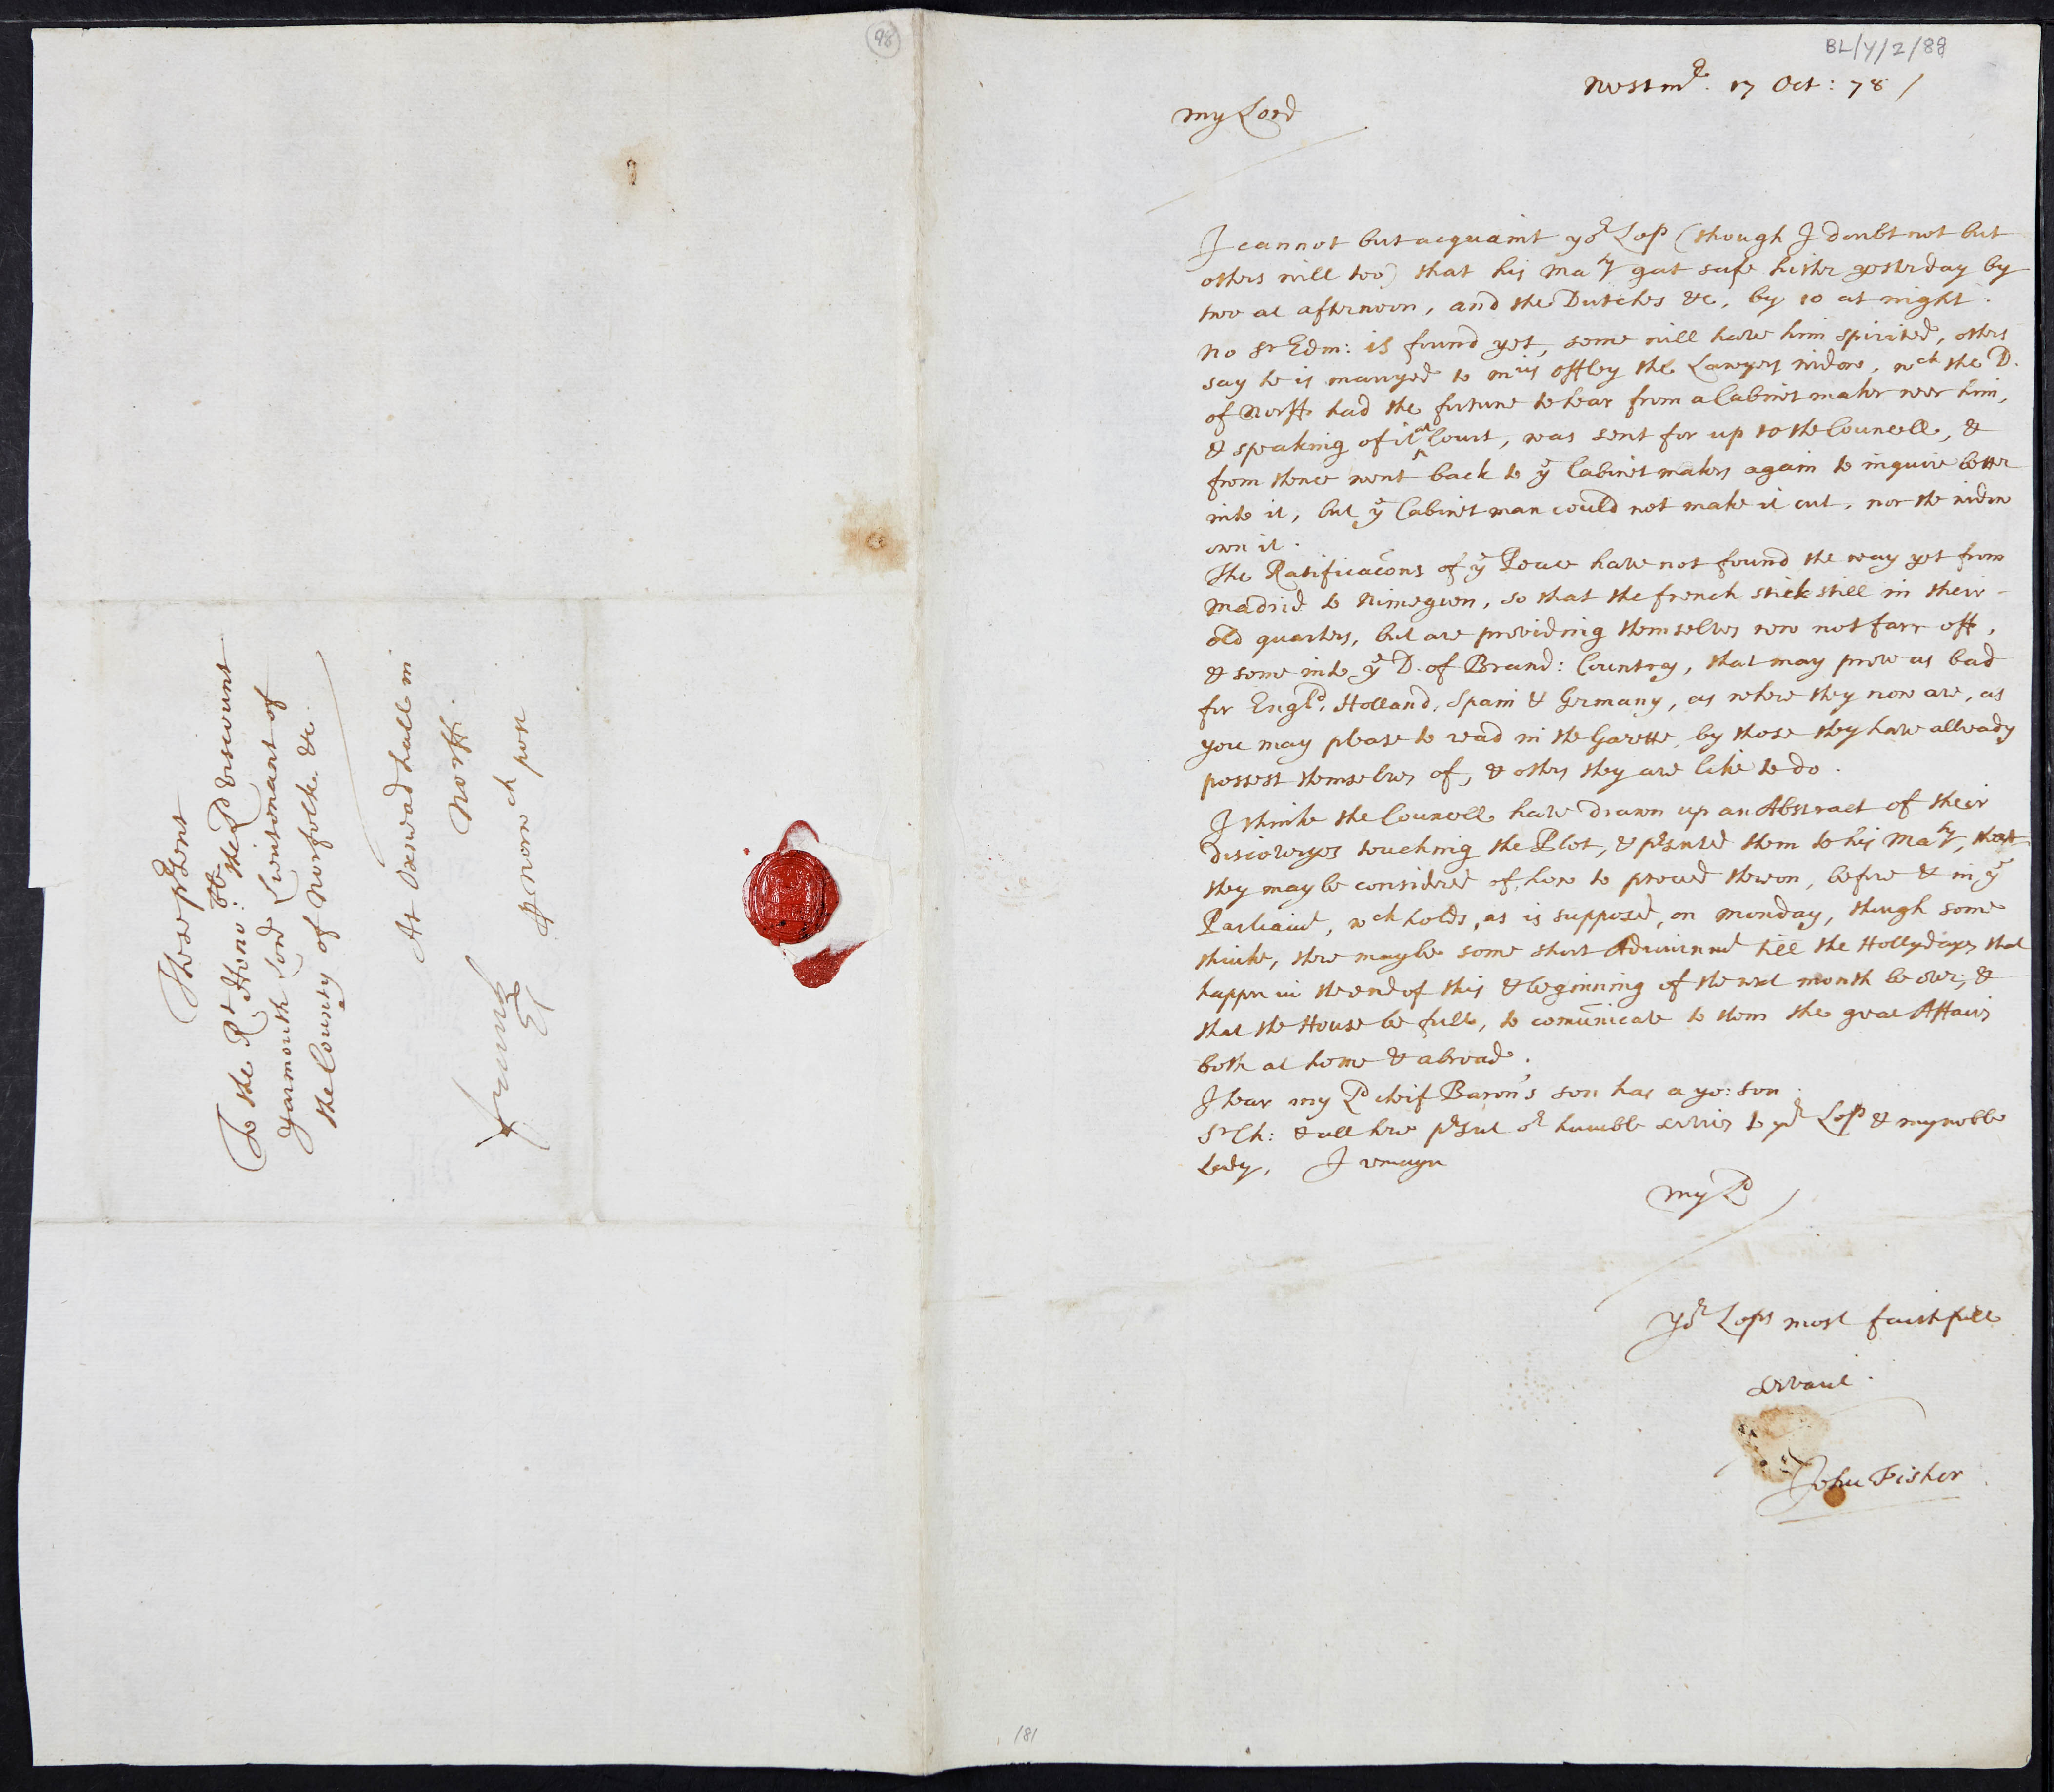 98
BL/Y/2/88
Westmr. 17 Oct: 78 /
My Lord
I cannot but acquaint yor Lopp (though I doubt not but
others will too) that his Maty gat safe hither yesterday by
two at afternoon, and the Dutches &c, by 10 at night.
No Sr Edm: is found yet, some will have him spirited, others
say he is marryed to Mris Offley the Lawyers widow, wch the D.
of Norff had the fortune to hear from a Cabinet maker neer him,
& speaking of it at Court, was sent for up to the Councell, &
from thence went back to ye Cabinet makers again to inquire better
into it, but ye Cabinet man could not make it out, nor the widow
own it.
The Ratificacons of ye Peace have not found the way yet from
Madrid to Nimeguen, so that the french stick still in their
old quarters, but are providing themselves new not farr off,
& some into ye D. of Brand: Country, that may prove as bad
for Engld, Holland, Spain & Germany, as where they now are, as
you may please to read in the Gazette, by those they have allready
possest themselves of, & others they are like to do.
I thinke the Councell have drawn up an Abstract of their
discoveryes touching the Plot, & prsnted them to his Maty, that
they may be considered of, how to proceed thereon, before & in ye
Parliamt, wch holds, as is supposed, on Monday, though some
thinke, there may be some short Adiournmt till the Hollydayes that
happen in the end of this & beginning of the next month be over, &
that the House be full, to comunicate to them the great Affairs
both at home & abroad.
I hear my Ld cheif Baron's son has a yo: son.
Sr Ch: & all here prsnt or humble service to yor Lopp & my noble
Lady, I remayn
My Ld
Yor Lopps most faithfull
servant.
John Fisher
These prsent
To the Rt Honoble: the Ld Viscount
Yarmouth Lord Lieutenant of
the County of Norfolke &c.
At Oxnead hall in
Norff.
p Norwch post
181